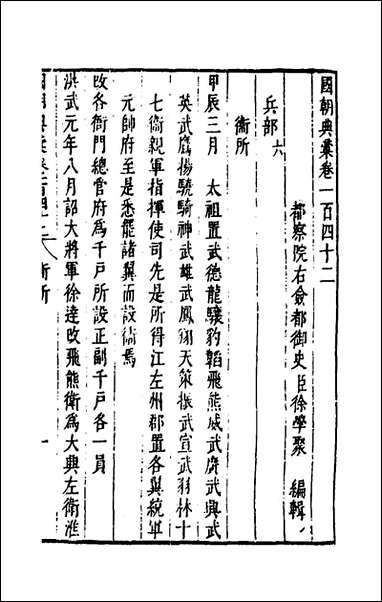 國朝典彙卷一百四十二
都察院右僉都御史臣徐學聚 編輯
兵部六
衞所
甲辰三月 太祖置武德龍驤豹韜飛熊威武廣武興武
英武鷹揚驍騎神武雄武鳳翔天策振武宣武羽林十
七衞親軍指揮使司先是所得江左州郡置各翼統軍
元帥府至是悉罷諸翼而設衞焉
改各衞門總管府為千戶所設正副千戶各一員
洪武元年八月詔大將軍徐達改飛熊衛為大興左衛淮
國朝典彙卷一百四十二 衞所 一